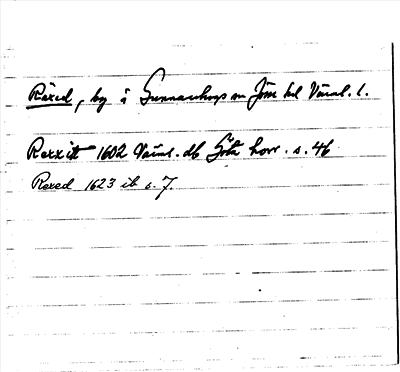 Räxed, by i Gunnarskogs sn Jösse hd Värml. l.
Rexxit 1602 Värml. db Göta hovr. s. 46
Rexed 1623 ib s. 7.